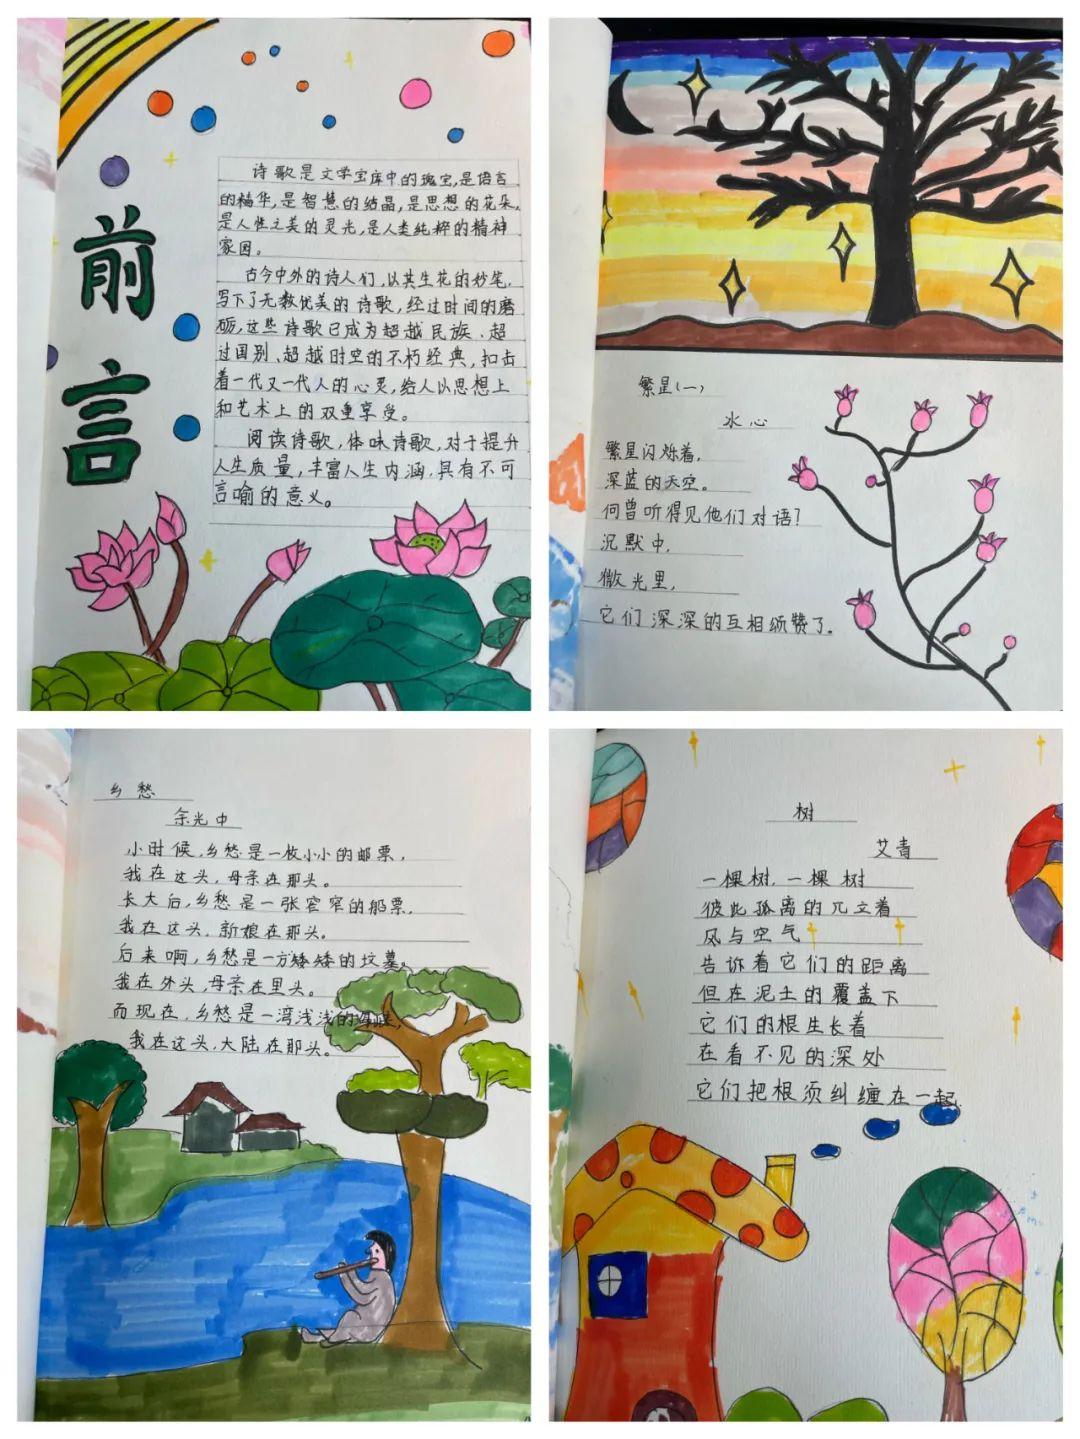 前言
诗歌是文学宝库中的瑰宝,是语言
的精华,是智慧的结晶,是思想的花朵,
是人性之美的灵光,是人类纯粹的精神
家园。
古今中外的诗人们,以其生花的妙笔,
写下了无数优美的诗歌,经过时间的磨
砺,这些诗歌已成为超越民族、超
过国别、超越时空的不朽经典,扣击
着一代又一代人的心灵,给人以思想上
和艺术上的双重享受。
阅读诗歌,体味诗歌,对于提升
人生质量,丰富人生内涵,具有不可
言喻的意义。
繁星(一)
冰心
繁星闪烁着,
深蓝的天空。
何曾听得见他们对语?
沉默中,
微光里,
它们深深的互相颂赞了。
乡愁
余光中
小时候,乡愁是一枚小小的邮票,
我在这头,母亲在那头。
长大后,乡愁是一张窄窄的船票,
我在这头,新娘在那头。
后来啊,乡愁是一方矮矮的坟墓。
我在外头,母亲在里头。
而现在,乡愁是一湾浅浅的海峡,
我在这头,大陆在那头。
树
艾青
一棵树,一棵树
彼此孤离的兀立着
风与空气
告诉着它们的距离
但在泥土的覆盖下
它们的根生长着
在看不见的深处
它们把根须纠缠在一起.